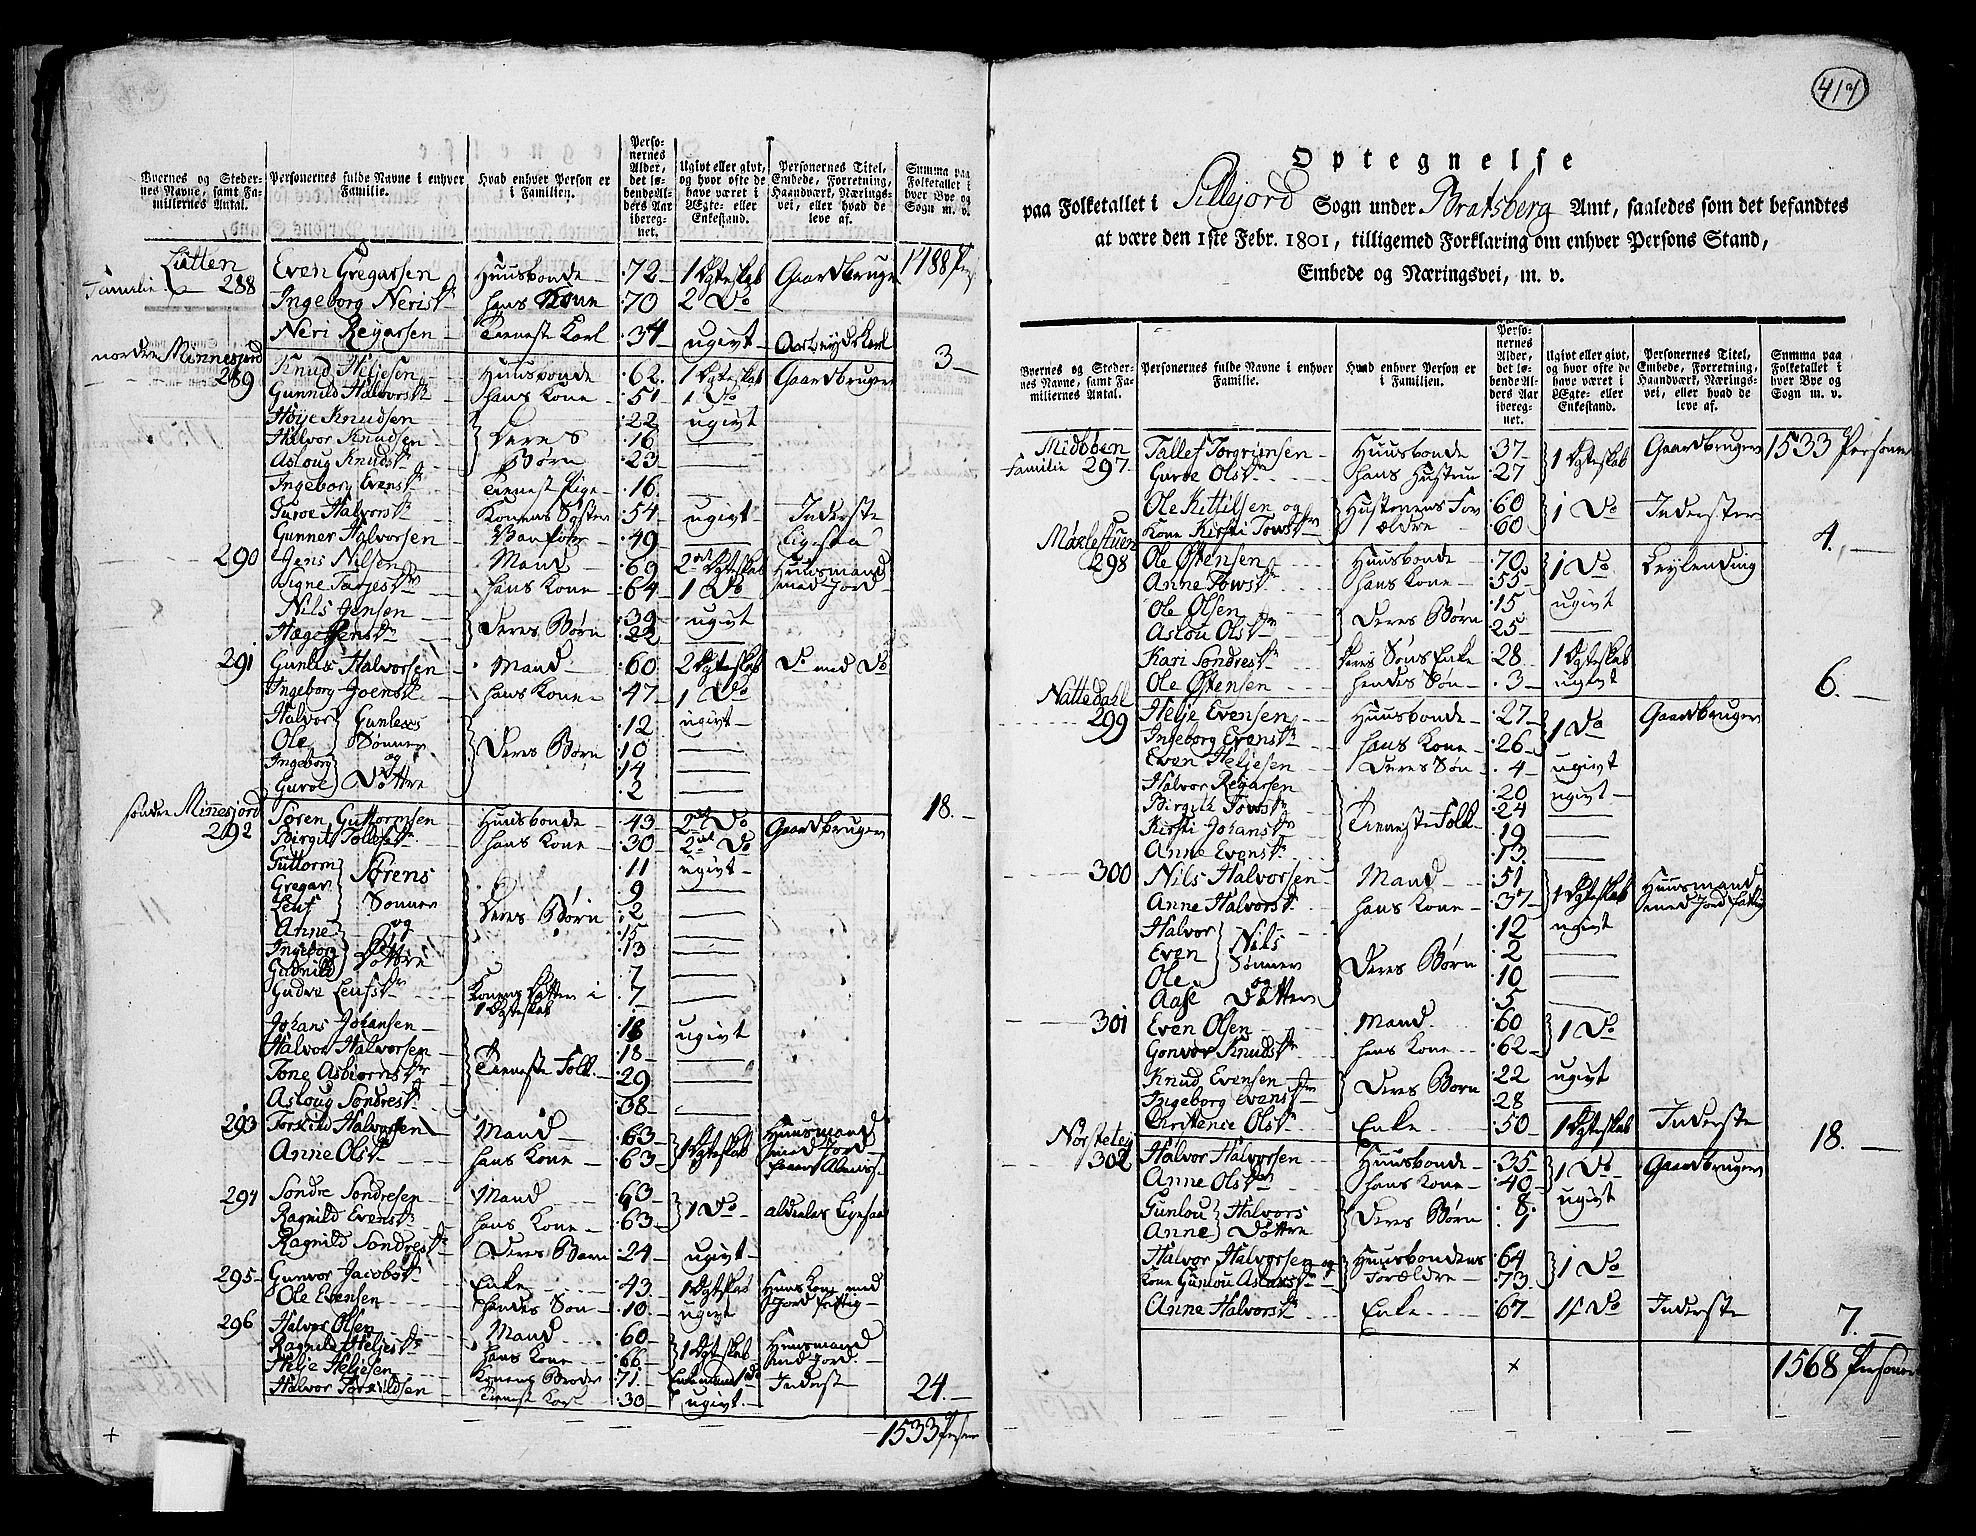 Byernes og Steder-
nes Navne, samt Fa-
miliernes Antal.
Personernes fulde Navne i enhver
Familie.
Hvad enhver Person er
i Familien.
Perso-
nernes
Alder,
det lø-
bende Al-
ders Aar
iberegnet.
Ugivt eller givt,
og hvor ofte de
have været i
Ægte- eller
Enkestand.
Personernes Titel,
Embede, Forretning,
Haandværk, Nærings-
vei, eller hvad de
leve af.
Summa paa
Folketallet i
hver Bye og
Sogn m. v.
Lutten Even Gregarsen Huusbonde 72 1 Ægteskab Gaardbruger 1488 Pers
Familie 288 Ingeborg Nerisdr hans Kone 70 2 Do
Neri Reyarsen Tieneste Karl 34 ugivt Aarbeydskarl 3
norden Minnesjord
289 Knud Heljesen Huusbonde 62 1 Ægteskab Gaardbruger
Gunnild Halvorsdr hans Kone 51 1 Do
Høije Knudsen 22 ugivt
Halvor Knudsen Deres 16
Asloug Knudsdr Børn 23
Ingeborg Evensdr Tieneste Pige 16
Guroe Halvorsdr Konens Søster 54 ugivt Inderste
Gunner Halvorsen 49
290 Jens Nilsen Mand 69 2det Ægteskab Huusmand
Signe Tarjesdr hans Kone 64 1 Do med Jord
Nils Jensen Deres Børn 39 ugivt
Hæge Jensdr 22
291 Gunlex Halvorsen Mand 60 2 Ægteskab Do med Do
Ingeborg Joensdr hans Kone 47 1 Do
Halvor Gunlexs 12 ugivt
Ole Sønner Deres Børn 10
Ingeborg og 14
Guroe Døttre 2
18
sønden Minesjord
292 Søren Guttormsen Huusbonde 43 2det Do Gaardbruger
Birgit Tollefsdr hans Kone 30 2det Do
Guttorm Sørens 11 ugivt
Gregar 9
Leuf Sønner Deres Børn 2
Anne og 15
Ingeborg Døttre 13
Gudnild 7
Gudve Leufsdr Konens Datter i 7
1 Ægteskab
Johans Johansen 18 ugivt
Halvor Halvorsen Tieneste Folk 18
Tone Asbiørnsdr 29
Asloug Sondresdr 38
293 Torkild Halvorsen Mand 63 1 Ægteskab Huusmand
Anne Olsdr hans Kone 63 med Jord
294 Sondre Sondresen Mand 63 1 Do
Ragnild Evensdr hans Kone 63
Ragnild Sondresdr Deres Barn 24 ugivt
295 Gunvor Jacobsdr Enke 43 1 Ægteskab Huuskone med
Ole Evensen hendes Søn 10 ugivt Jord fattig
296 Halvor Olsen Mand 60 1 Ægteskab Huusmand
Ragnild Heljesdr hans Kone 66 med Jord
Helje Heljesen Konens Broder 71 Inderst
Halvor Torkildsen Tieneste Karl 30 ugivt 24
1533 Persone
414
Optegnelse
paa Folketallet i Sillejord Sogn under Bratsberg Amt, saaledes som det befandtes
at være den 1ste Febr. 1801, tilligemed Forklaring om enhver Persons Stand,
Embede og Næringsvei, m. v.
Byernes og Steder-
nes Navne, samt Fa-
miliernes Antal.
Personernes fulde Navne i enhver
Familie.
Hvad enhver Person er
i Familien.
Perso-
nernes
Alder,
det lø-
bende Al-
ders Aar
ibereg-
net.
Ugivt eller givt,
og hvor ofte de
have været i
Ægte- eller
Enkestand.
Personernes Titel,
Embede, Forretning,
Haandværk, Nærings-
vei, eller hvad de
leve af.
Summa paa
Folketallet i
hver Bye og
Sogn m. v.
Midbøen Tallef Torgrimsen Huusbonde 37 1 Ægteskab Gaardbruger 1533 Personer
Familie 297 Guroe Olsdr hans Hustrue 27
Ole Kettilsen og Hustruens For 60 1 Do Inderster
Kone Kirsti Towsdr ældre 60 4
Moxlestuen
298 Ole Østensen Huusbonde 70 1 Do Leylending
Anne Towsdr hans Kone 55
Ole Olsen Deres Børn 15 ugivt
Aslou Olsdr 25
Kari Sondresdr Deres Søns Enke 28 1 Ægteskab
Ole Østensen hendes Søn 3 ugivt 6
Nattedahl
299 Helje Evensen Huusbonde 27 1 Do Gaardbruger
Ingeborg Evensdr hans Kone 26
Even Heljesen Deres Søn 4 ugivt
Halvor Reyarsen 20 ugivt
Birgith Towsdr Tieneste Folk 24
Kirsti Johansdr 19
Anne Evensdr 13
300 Nils Halvorsen Mand 51 1 Ægteskab Huusmand
Anne Halvorsdr hans Kone 37 med Jord fattig
Halvor Nils 12 ugivt
Even Sønner Deres Børn 2
Ole og 10
Aase Døtter 5
301 Even Olsen Mand 60 1 Do
Gonvor Knudsdr hans Kone 62
Knud Evensen Deres Børn 22 ugivt
Ingeborg Evensdr 28
Christence Olsdr Enke 50 1 Ægteskab Inderste 18
Norstetej
302 Halvor Halvorsen Huusbonde 35 1 Do Gaardbruger
Anne Olsdr hans Kone 40
Gunlou Halvors Deres Børn 8 ugivt
Anne Døttre 1
Halvor Halvorsen og Huusbondens 64 1 Do
Kone Gunlou Aslaksdr Forældre 73
Anne Halvorsdr Enke 67 1 Do Inderste 7
1568 Personer